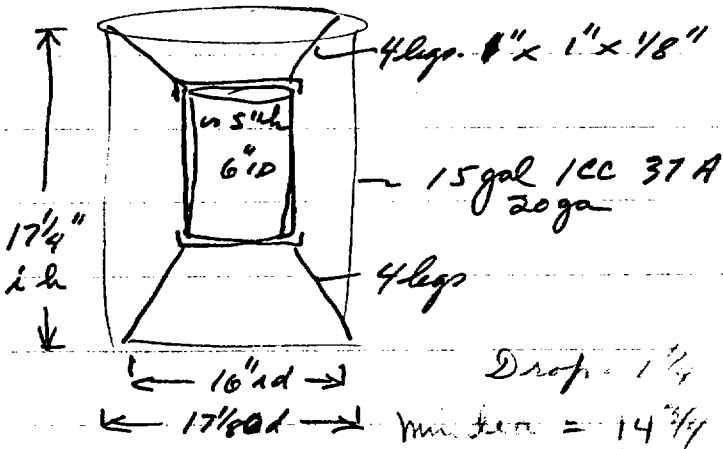 4 legs. 1" x 1" x 1/8"
5" ih
6" ID
15 gal ICC 37A
20 ga
17 1/4"
i h
4 legs
16" id
17 1/8 Od
Drop - 1 1/4
= 14 3/4